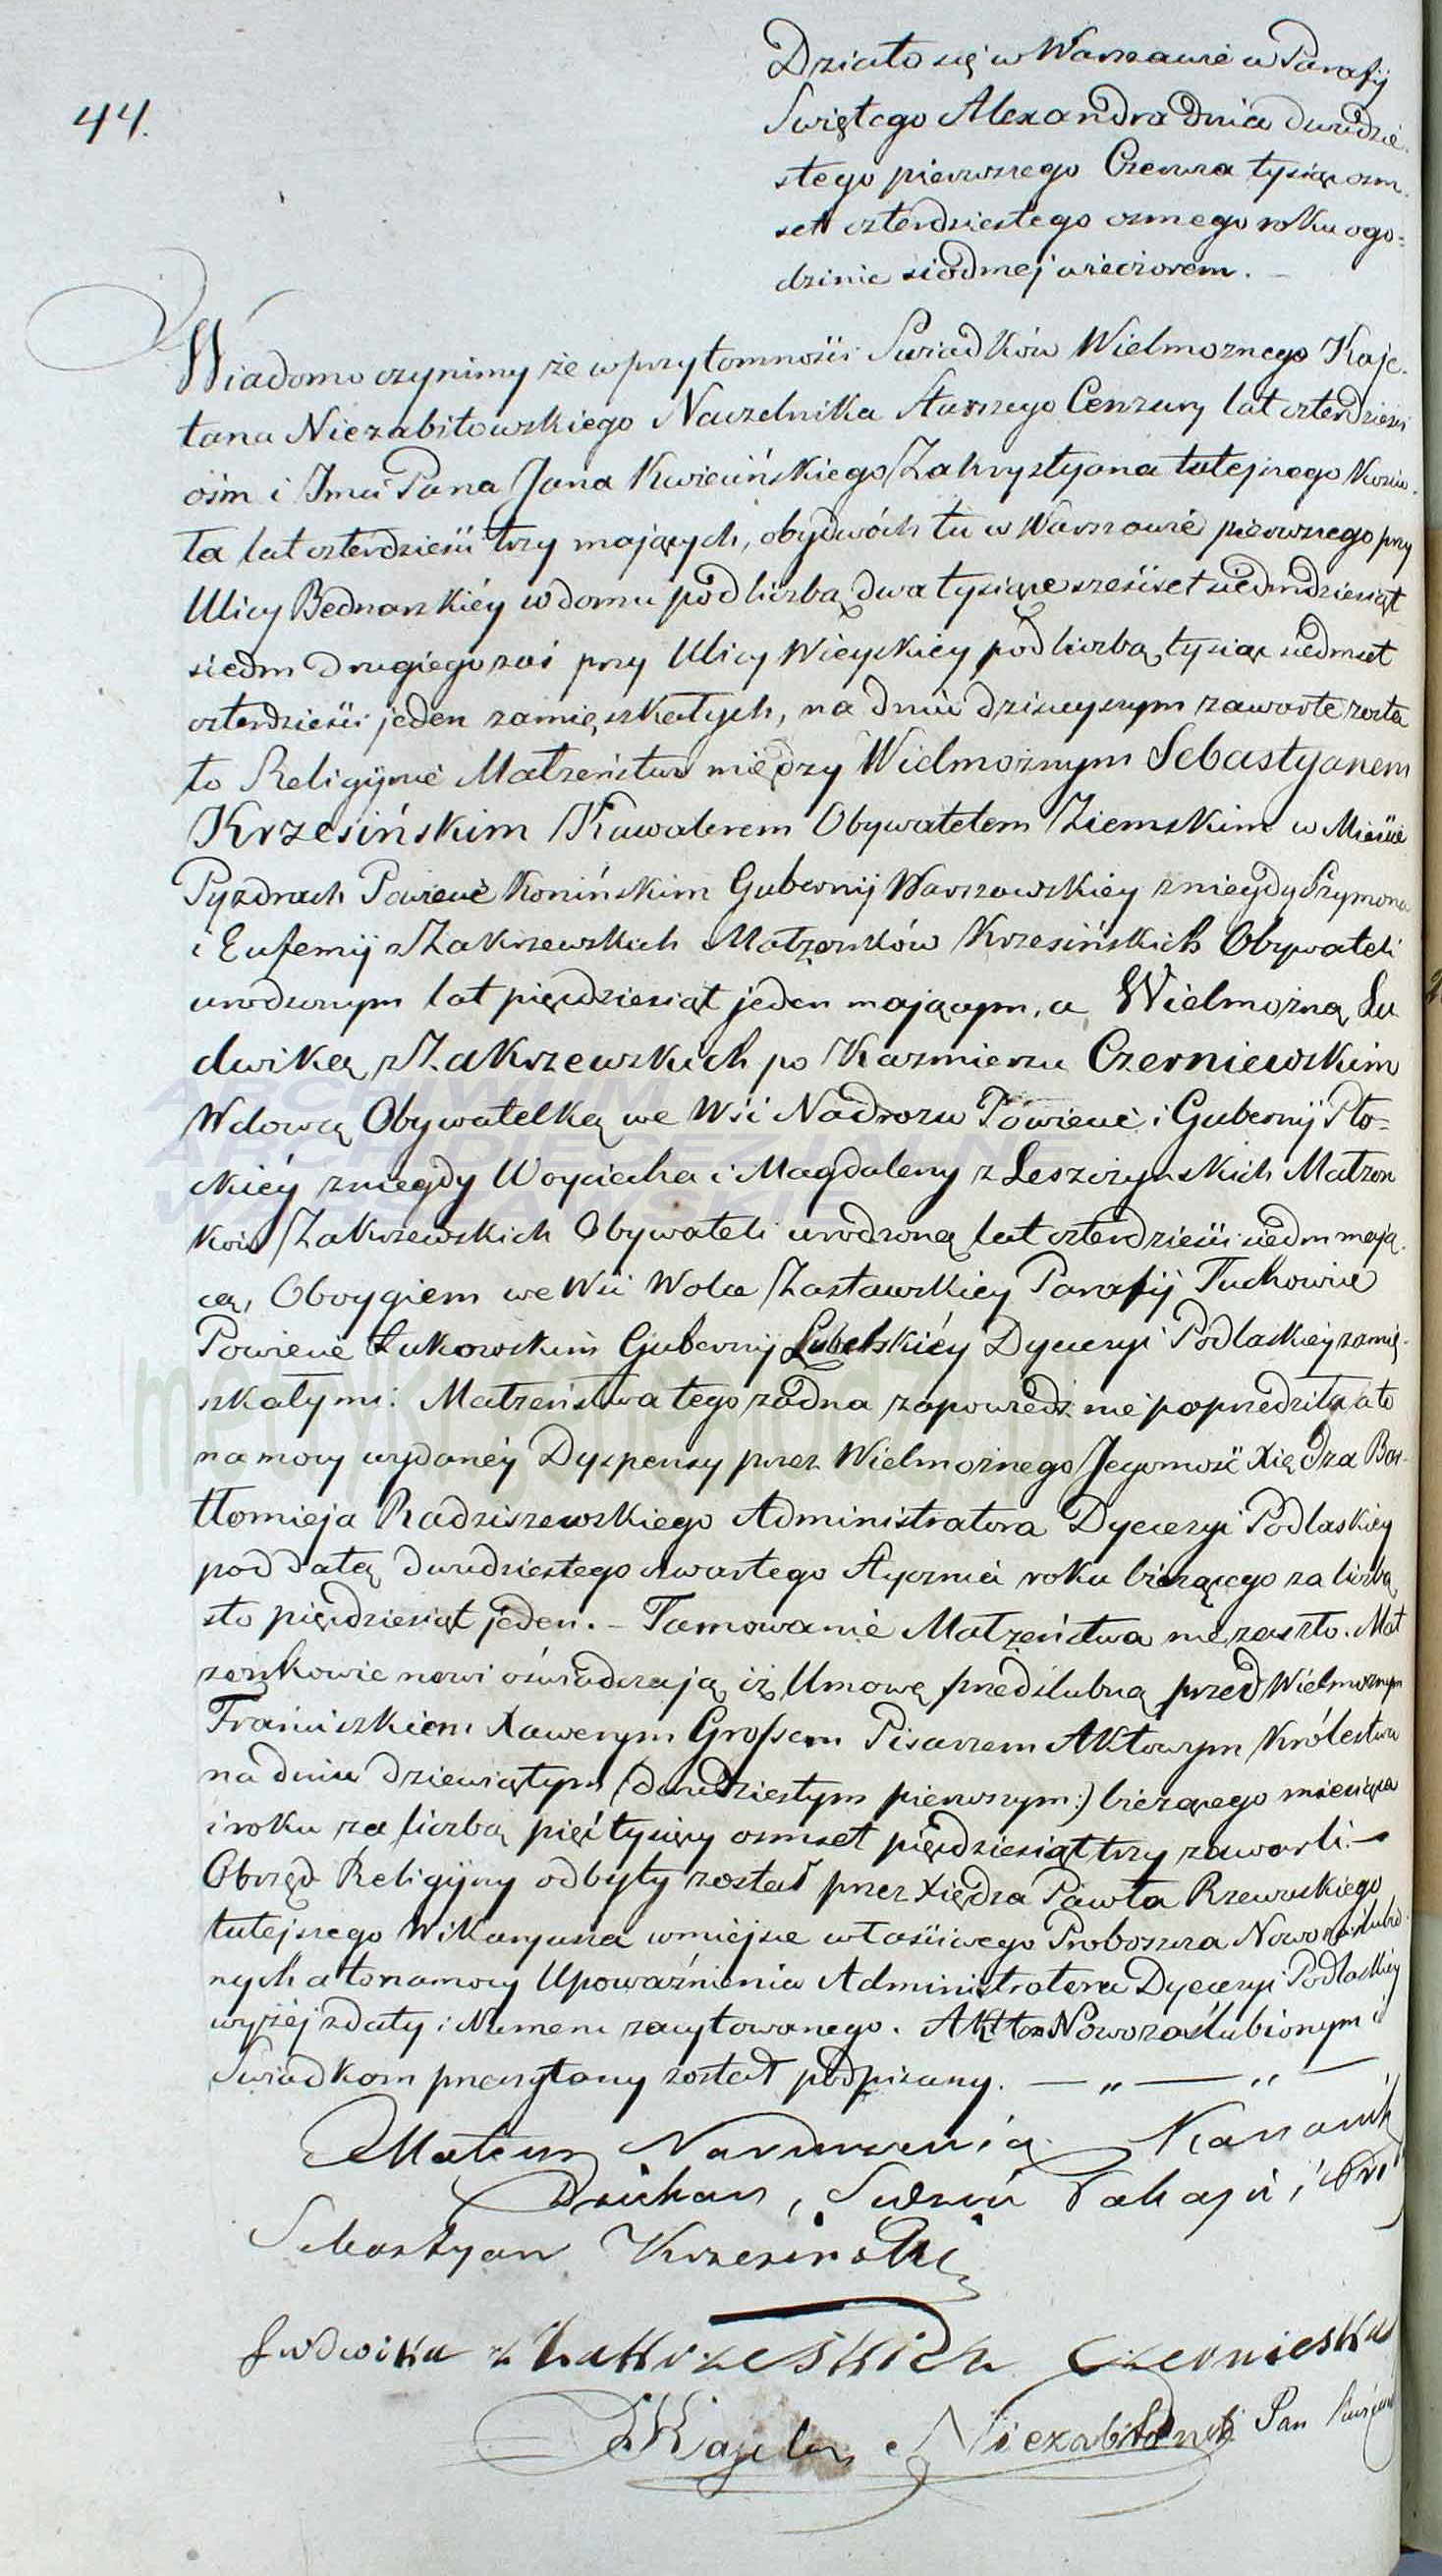 44.
Działo się w Warszawie w Parafij
Swiętego Alexandra dnia dwudzie-
stego pierwszego Czerwca tysiąc osm-
set czterdziestego osmego roku ogo=
dzinie siodmej wieczorem. –
Wiadomo czynimy że w przytomności Swiadków Wielmożnego Kaje-
tana Niezabitowskiego Naczelnika starszego Cenzury lat czterdzieści
ośm i Jmci Pana Jana Kwiecińskiego Zakrystyana tutejszego Kościo-
ła lat czterdzieści trzy mających, obydwóch tu w Warszawie pierwszego przy
Ulicy Bednarskiéy w domu pod liczbą dwa tysiące sześćset siedmdziesiąt
siedm drugiego zaś przy Ulicy Wieyskiey pod liczbą tysiąc siedmset
czterdzieści jeden zamięszkałych, na dniu dzisieyszym zawarte zosta
ło Religijnie Małżeństwo między Wielmożnym Sebastyanem
Krzesińskim Kawalerem Obywatelem Ziemskim w Mieście
Pyzdrach Powiecie Konińskim Gubernij Warszawskiey z niegdy Szymona
i Eufemij z Zakrzewskich Małżonków Krzesińskich Obywateli
urodzonym lat pięćdziesiąt jeden mającym, a Wielmożną Lu
dwiką z Zakrzewskich po Kazmierzu Czerniewskim
Wdową Obywatelką we Wsi Nadrożu Powiecie i Gubernij Pło=
ckiéy z niegdy Woyciecha i Magdaleny z Leszczyńskich Małżon
ków Zakrzewskich Obywateli urodzoną lat czterdzieści siedm mają-
cą, Oboygiem we Wsi Wolce Zastawskiey Parafij Tuchowicz
Powiecie Łukowskim Gubernij Lubelskiéy Dyecezyi Podlaskiey zamię-
szkałymi. Małżeństwa tego żadna zapowiedź nie poprzedziła a to
na mocy wydanéy Dyspensy przez Wielmożnego Jegomość Xiędza Bar-
tłomieja Radziszewskiego Administratora Dyecezyi Podlaskiey
pod datą dwudziestego czwartego stycznia roku bieżącego za liczbą
sto pięćdziesiąt jeden. – Tamowanie Małżeństwa nie zaszło. Mał
żonkowie nowi oświadczają iż Umowę przedślubną przed Wielmożnym
Franciszkiem Xawerym Grossem Pisarzem Aktowym Królestwa
na dniu dziewiątym (dwudziestym pierwszym:) bieżącego miesiąca
i roku za liczbą pięć tysięcy osmset pięćdziesiąt trzy zawarli. –
Obrzęd Religijny odbyty został przez Xiędza Pawła Rzewuskiego
tutejszego Wikaryusza w miejsce właściwego Proboszcza Nowozaślubio-
nych a to na mocy Upoważnienia Administratora Dyecezyi Podlaskiey
wyżéj z daty i Numeru zacytowanego. Akt ten Nowozaślubionym i
Swiadkom przeczytany został podpisany. — „ — „ —
Mateusz Kanonik
Dziekan, Sędzia Pokoju,
Sebastyan Krzesiński
Ludwika z Zakrzeskich Czernieska
Kajetan Niezabitowski Jan
ARCHIWUM
ARCHIDIECEZJALNE
WARSZAWSKIE